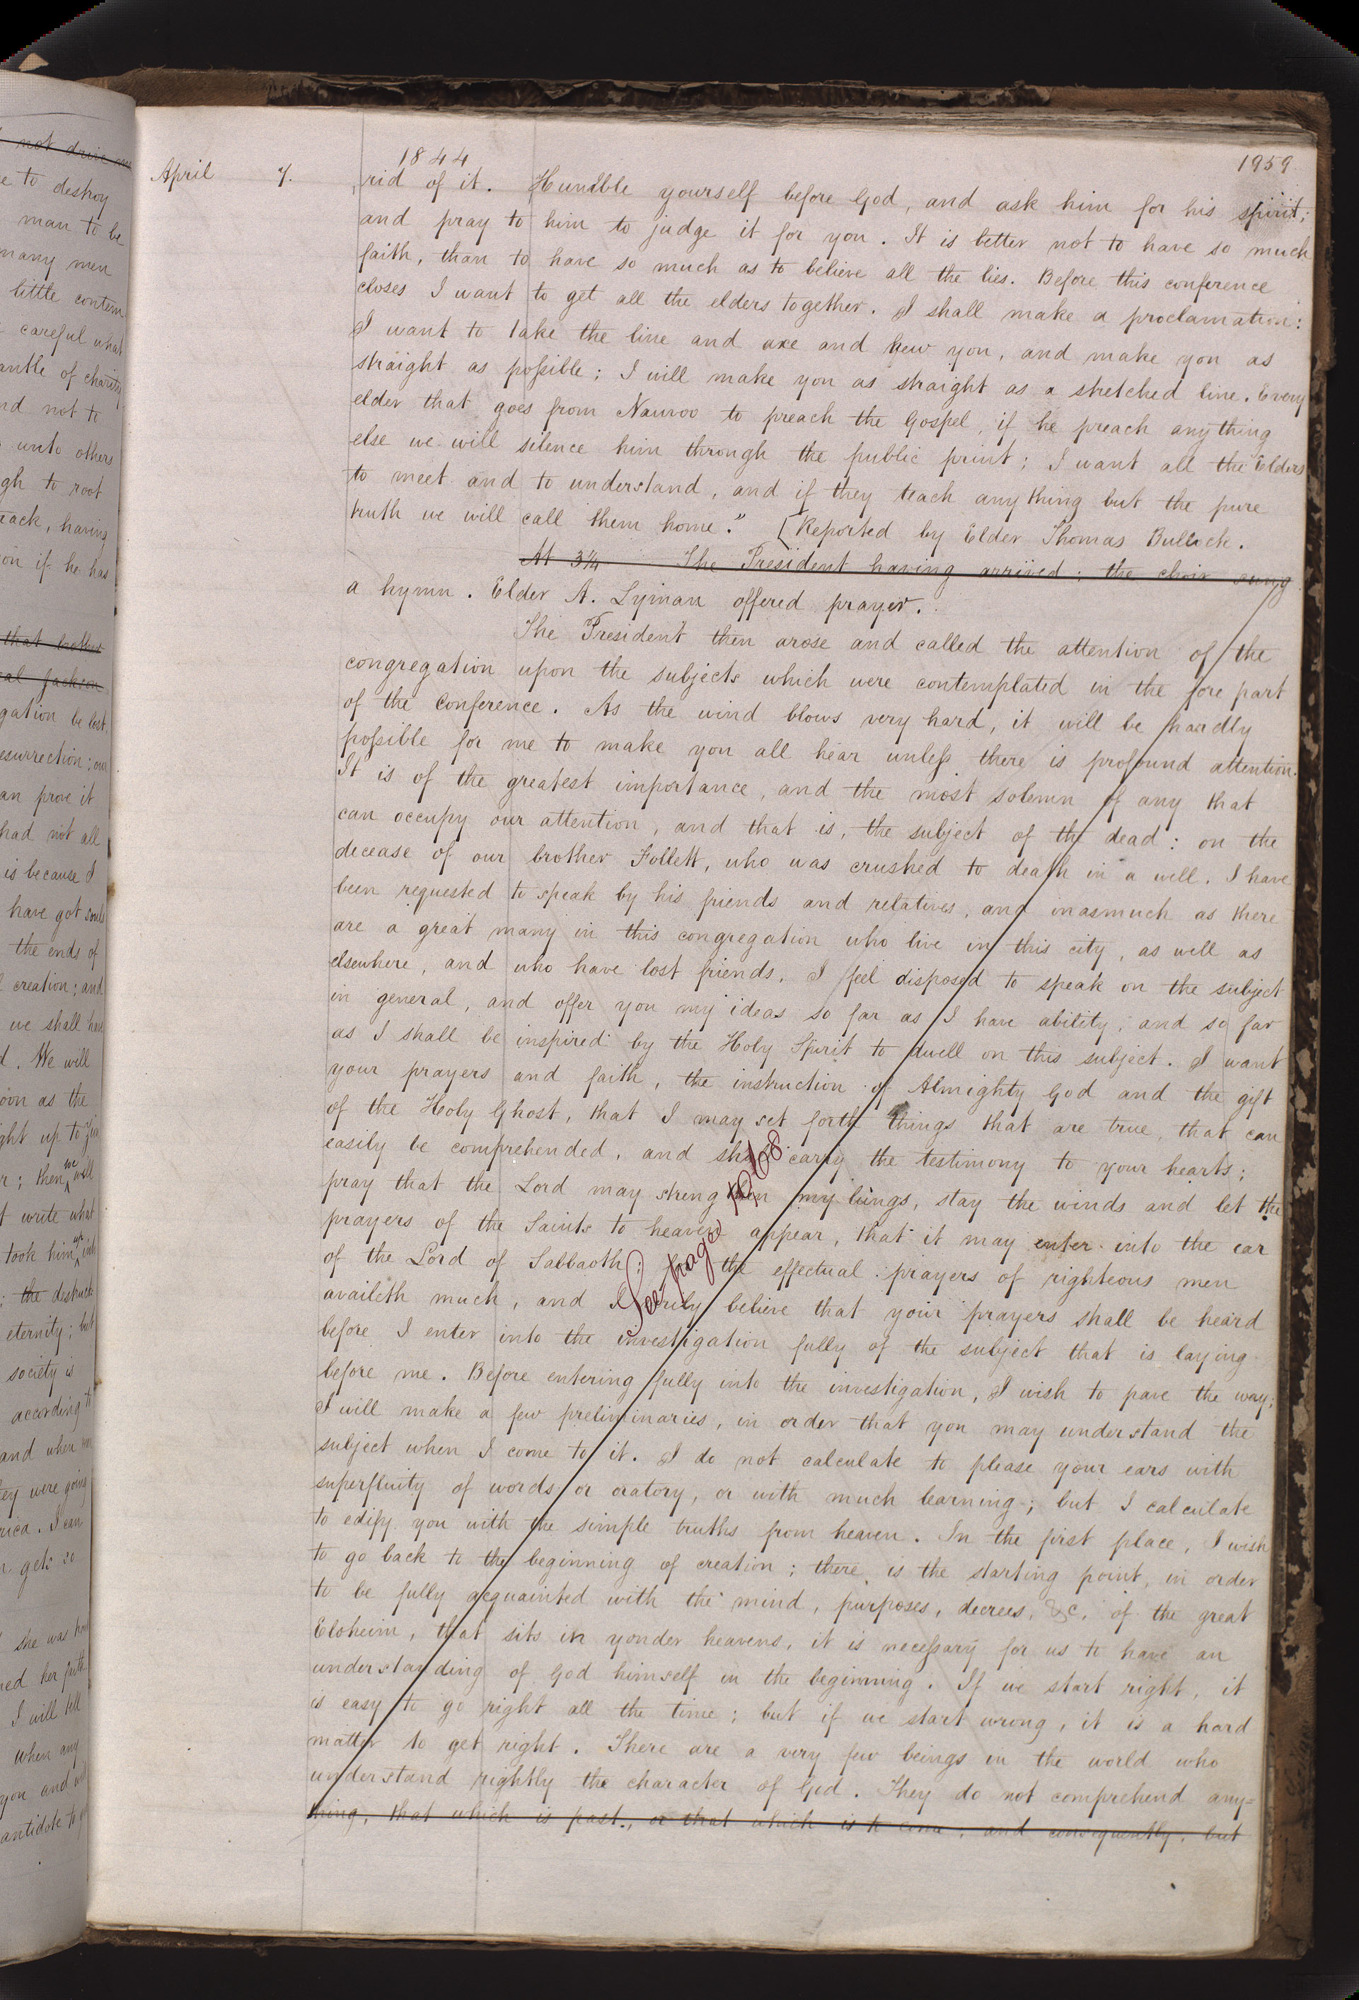 not drive
e to destroy
man to be
many men
little contem
careful what
antle of charity
nd not to
unto others
gh to root
rack, having
on if he has
that brother
cal Jackson
gation be lost
esurrection; our
an prove it
had not all
is because I
have got
the ends of
creation; and
we shall have
d. We will
oon as the
ght up to
r; then we will
t write what
took him up into
; the
eternity; but
society is
according to
and when
ey were going
rica. I can
gets so
she was
ned her faith
I will tell
when any
you and
antidote to
1844
1959
April 7.
rid of it. Humble yourself before God, and ask him for his spirit;
and pray to him to judge it for you. It is better not to have so much
faith, than to have so much as to believe all the lies. Before this conference
closes I want to get all the elders together. I shall make a proclamation:
I want to take the line and axe and hew you, and make you as
straight as possible; I will make you as straight as a stretched line. Every
elder that goes from Nauvoo to preach the Gospel, if he preach anything
else we will silence him through the public print; I want all the Elders
to meet and to understand, and if they teach anything but the pure
truth we will call them home." [Reported by Elder Thomas Bullock.
At 3¼ The President having arrived; the choir sung
a hymn. Elder A. Lyman offered prayer.
The President then arose and called the attention of the
congregation upon the subjects which were contemplated in the fore part
of the conference. As the wind blows very hard, it will be hardly
possible for me to make you all hear unless there is profound attention.
It is of the greatest importance, and the most solemn of any that
can occupy our attention, and that is, the subject of the dead: on the
decease of our brother Follett, who was crushed to death in a well. I have
been requested to speak by his friends and relatives, and inasmuch as there
are a great many in this congregation who live in this city, as well as
elsewhere, and who have lost friends, I feel disposed to speak on the subject
in general, and offer you my ideas so far as I have ability, and so far
as I shall be inspired by the Holy Spirit to dwell on this subject. I want
your prayers and faith, the instruction of Almighty God and the gift
of the Holy Ghost, that I may set forth things that are true, that can
easily be comprehended, and shall carry the testimony to your hearts;
pray that the Lord may strengthen my lungs, stay the winds and let the
prayers of the Saints to heaven appear, that it may enter into the ear
of the Lord of Sabbaoth: for the effectual prayers of righteous men
availeth much, and I verily believe that your prayers shall be heard
before I enter into the investigation fully of the subject that is laying
before me. Before entering fully into the investigation, I wish to pave the way;
I will make a few preliminaries, in order that you may understand the
subject when I come to it. I do not calculate to please your ears with
superfluity of words or oratory, or with much learning; but I calculate
to edify you with the simple truths from heaven. In the first place, I wish
to go back to the beginning of creation; there is the starting point, in order
to be fully acquainted with the mind, purposes, decrees, &c, of the great
Eloheim, that sits in yonder heavens, it is necessary for us to have an
understanding of God himself in the beginning. If we start right, it
is easy to go right all the time; but if we start wrong, it is a hard
matter to get right. There are a very few beings in the world who
understand rightly the character of God. They do not comprehend any=
thing, that which is past, or that which is to come; and consequently, but
See page 1968